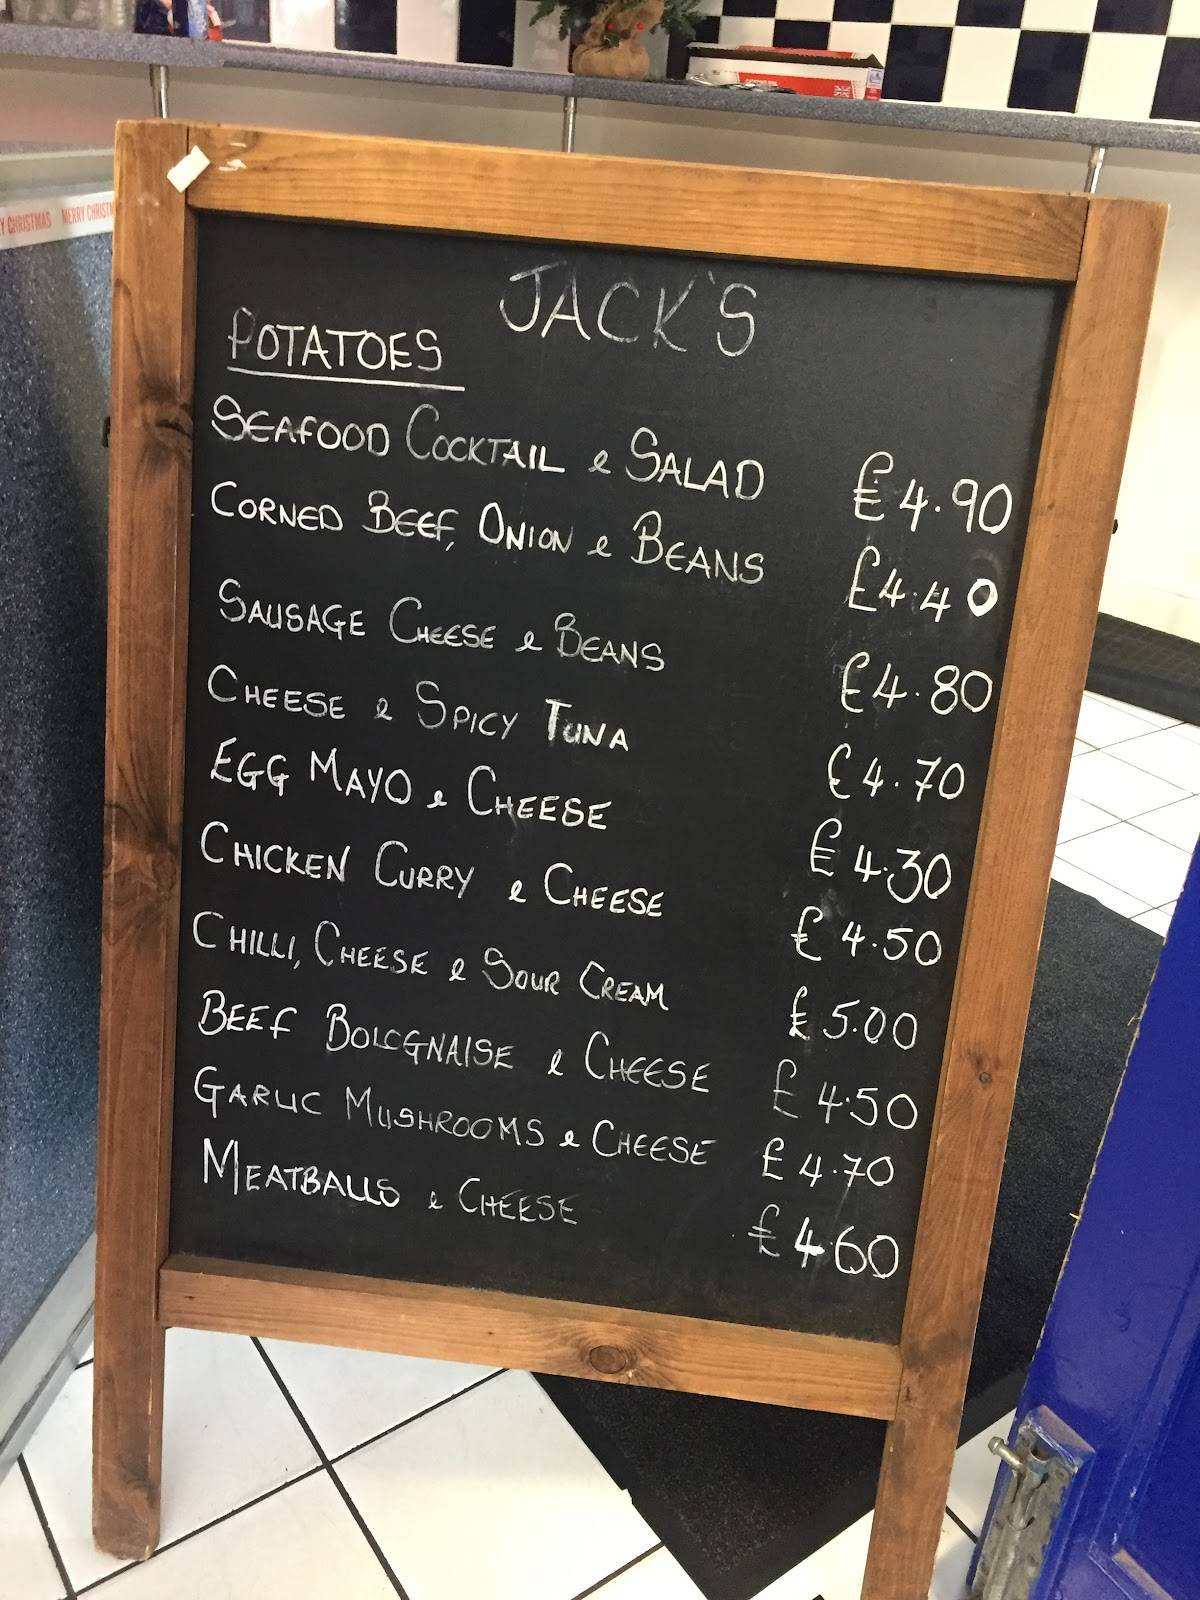 Y CHRISTMAS MERRY CHRISTM
JACK'S
POTATOES
SEAFOOD COCKTAIL & SALAD £4.90
CORNED BEEF, ONION & BEANS £4.40
SAUSAGE CHEESE & BEANS £4.80
CHEESE & SPICY TUNA £4.70
EGG MAYO & CHEESE £4.30
CHICKEN CURRY & CHEESE £4.50
CHILLI, CHEESE & SOUR CREAM £5.00
BEEF BOLOGNAISE & CHEESE £4.50
GARLIC MUSHROOMS & CHEESE £4.70
MEATBALLS & CHEESE £4.60